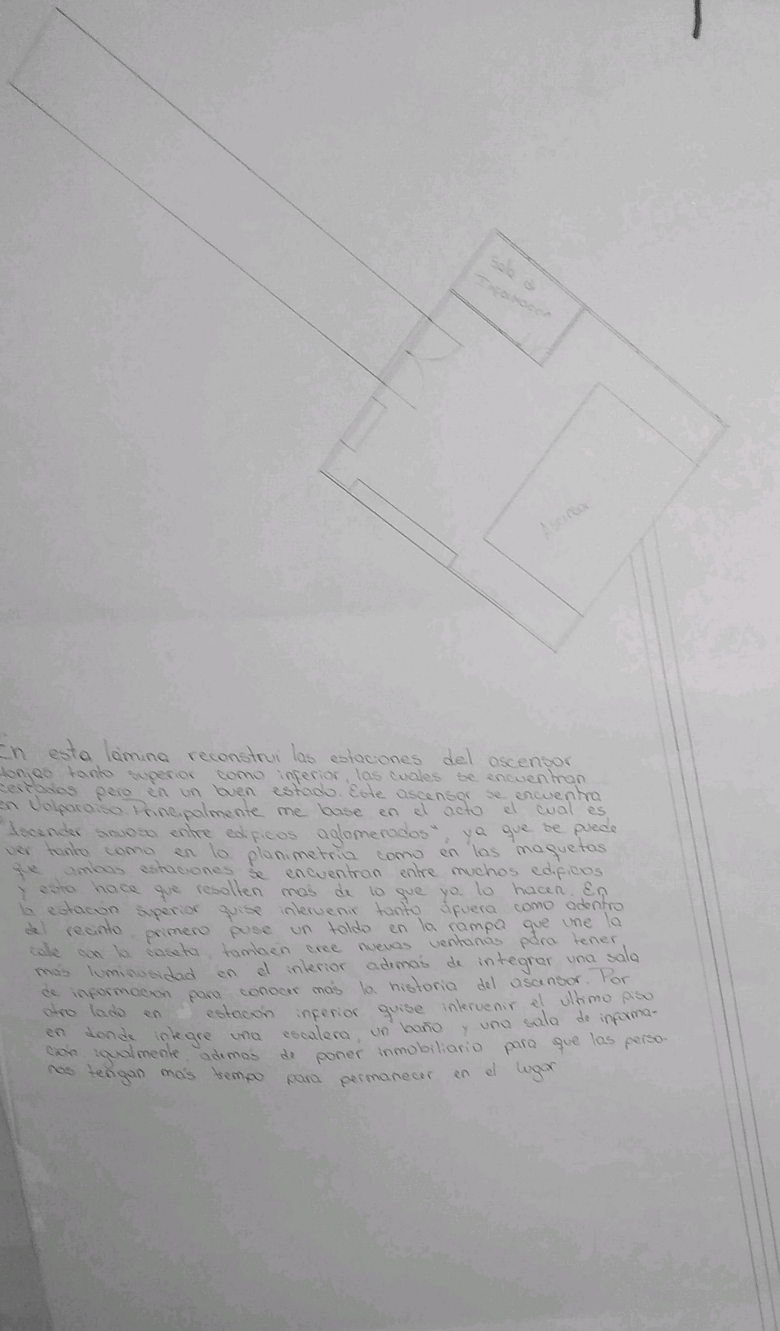 Sala de
Información
Ascensor
En esta lámina reconstrui las estaciones del ascensor
tanto superior como inferior, las cuales se encuentran
cerradas pero en un buen estado. Este ascensor se encuentra
en Valparaiso. Principalmente me base en el acto el cual es
"Ascender entre edificos aglomerados", ya que se puede
ver tanto como en la planimetria como en las maquetas
que ambas estaciones se encuentran entre muchos edificos
y esto hace que resalten más de lo que ya lo hacen. En
la estación superior quise intervenir tanto afuera como adentro
del recinto, primero puse un toldo en la rampa que une la
calle con la caseta, tambien cree nuevas ventanas para tener
más luminosidad en el interior además de integrar una sala
de información para conocer más la historia del ascensor. Por
otro lado en estación inferior quise intervenir el ultimo piso
en donde integre una escalera, un baño y una sala de informa-
ción igualmente, además de poner inmobiliario para que las perso-
nas tengan más tiempo para permanecer en el lugar